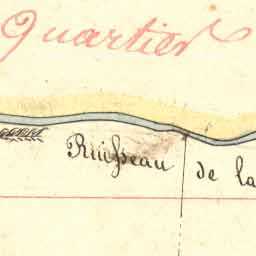 Quartier
Ruisseau de la